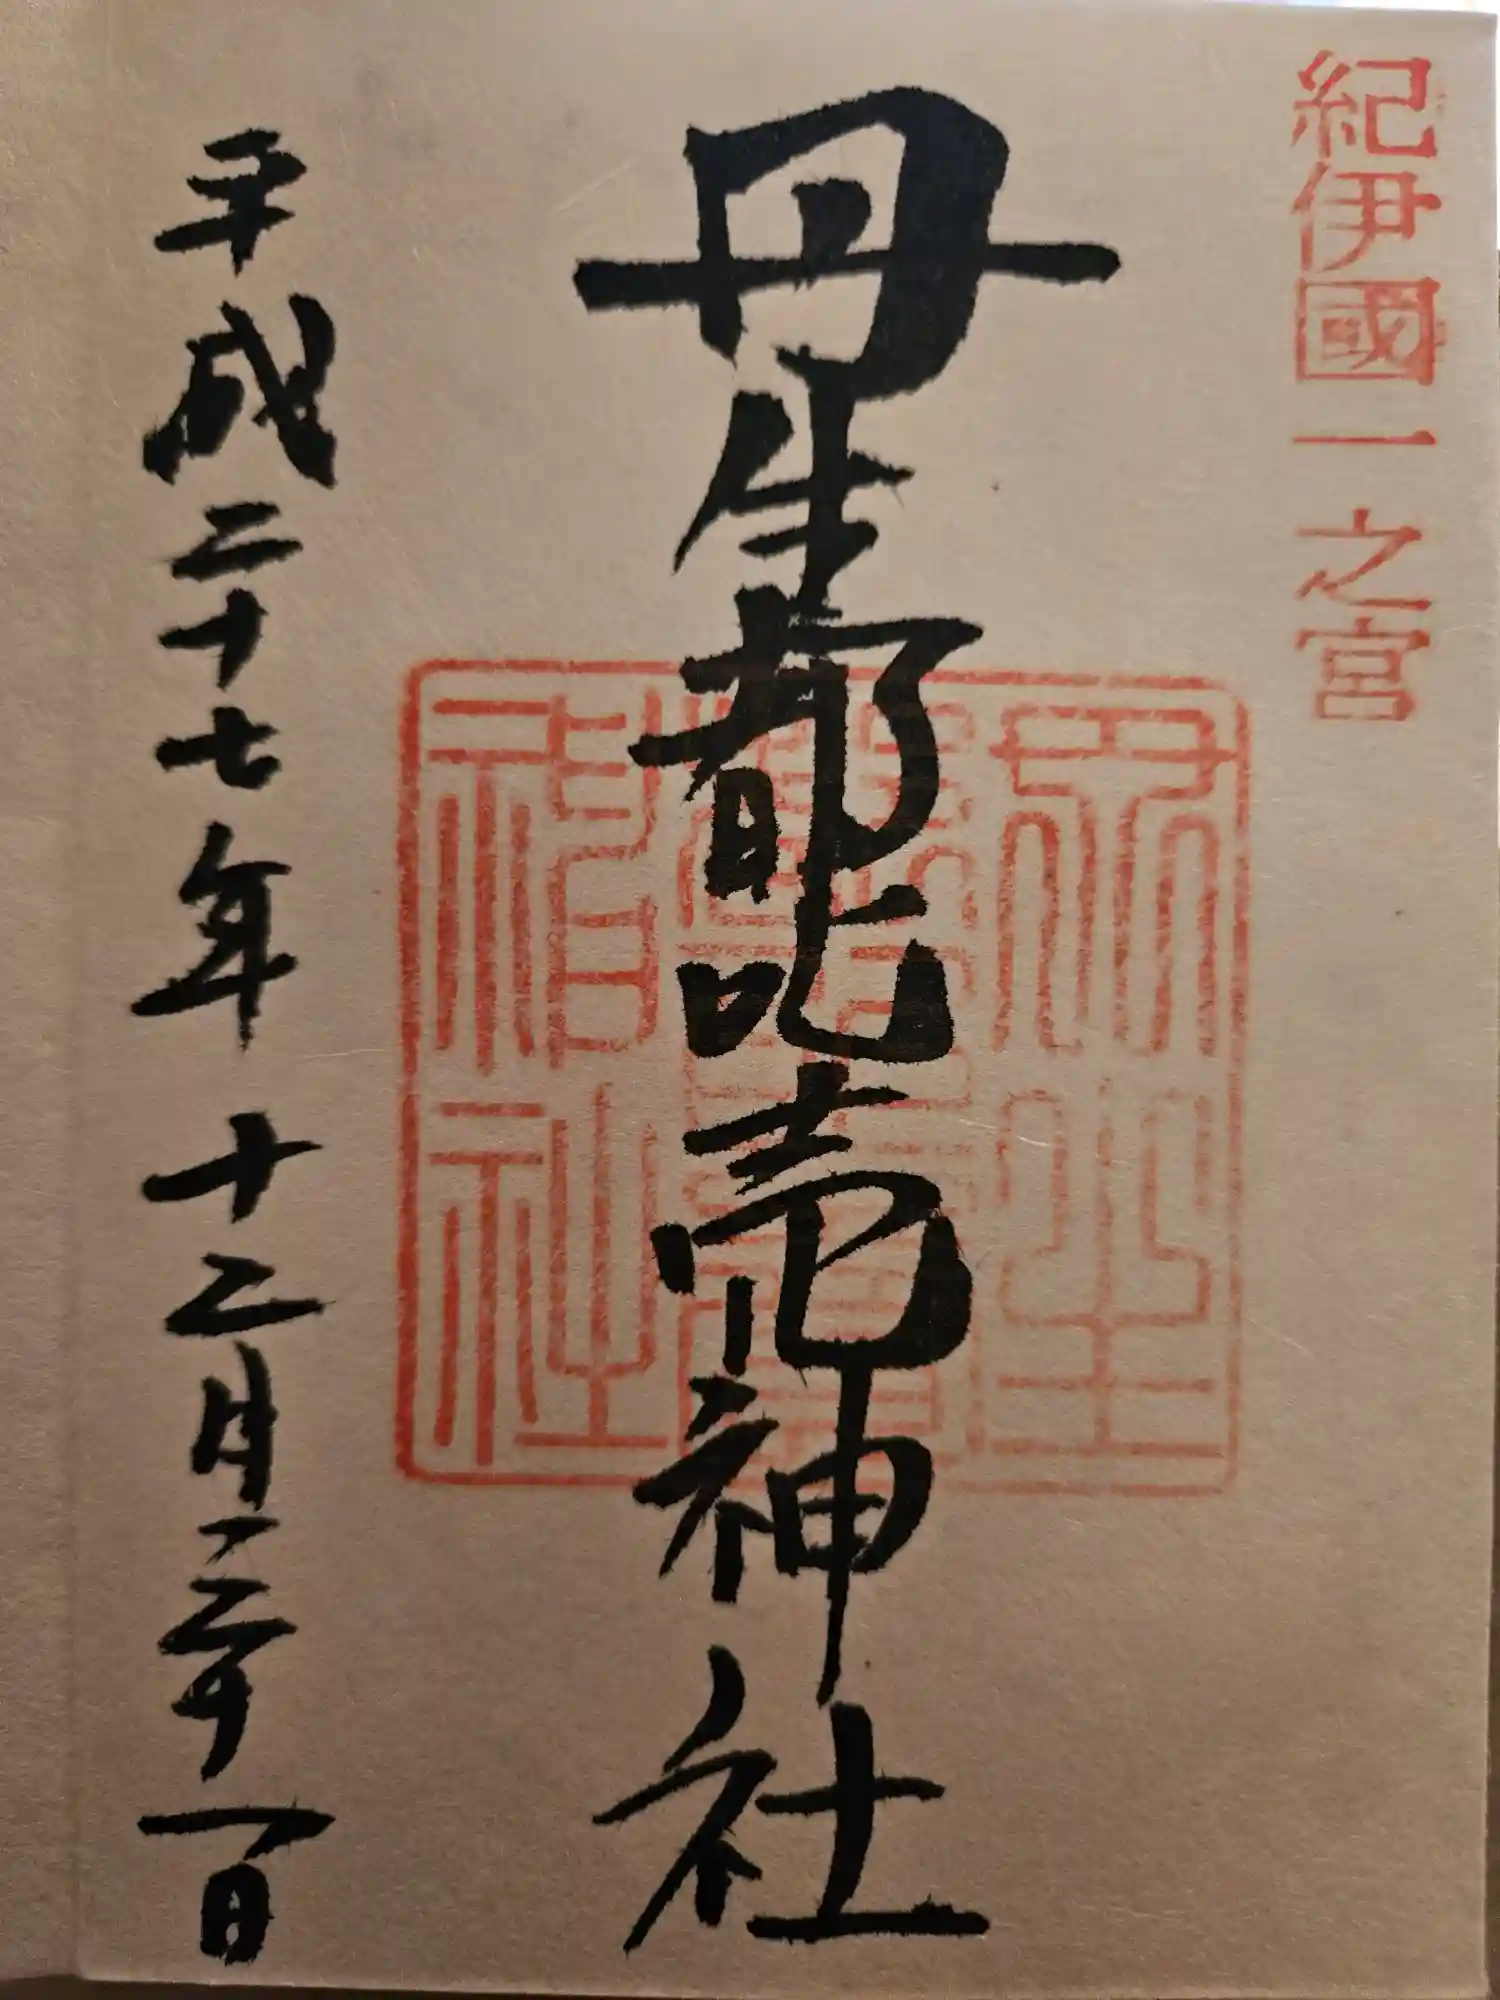 紀伊國一之宮
丹生都比売神社
丹生
神社
平成二十七年十二月二十一日